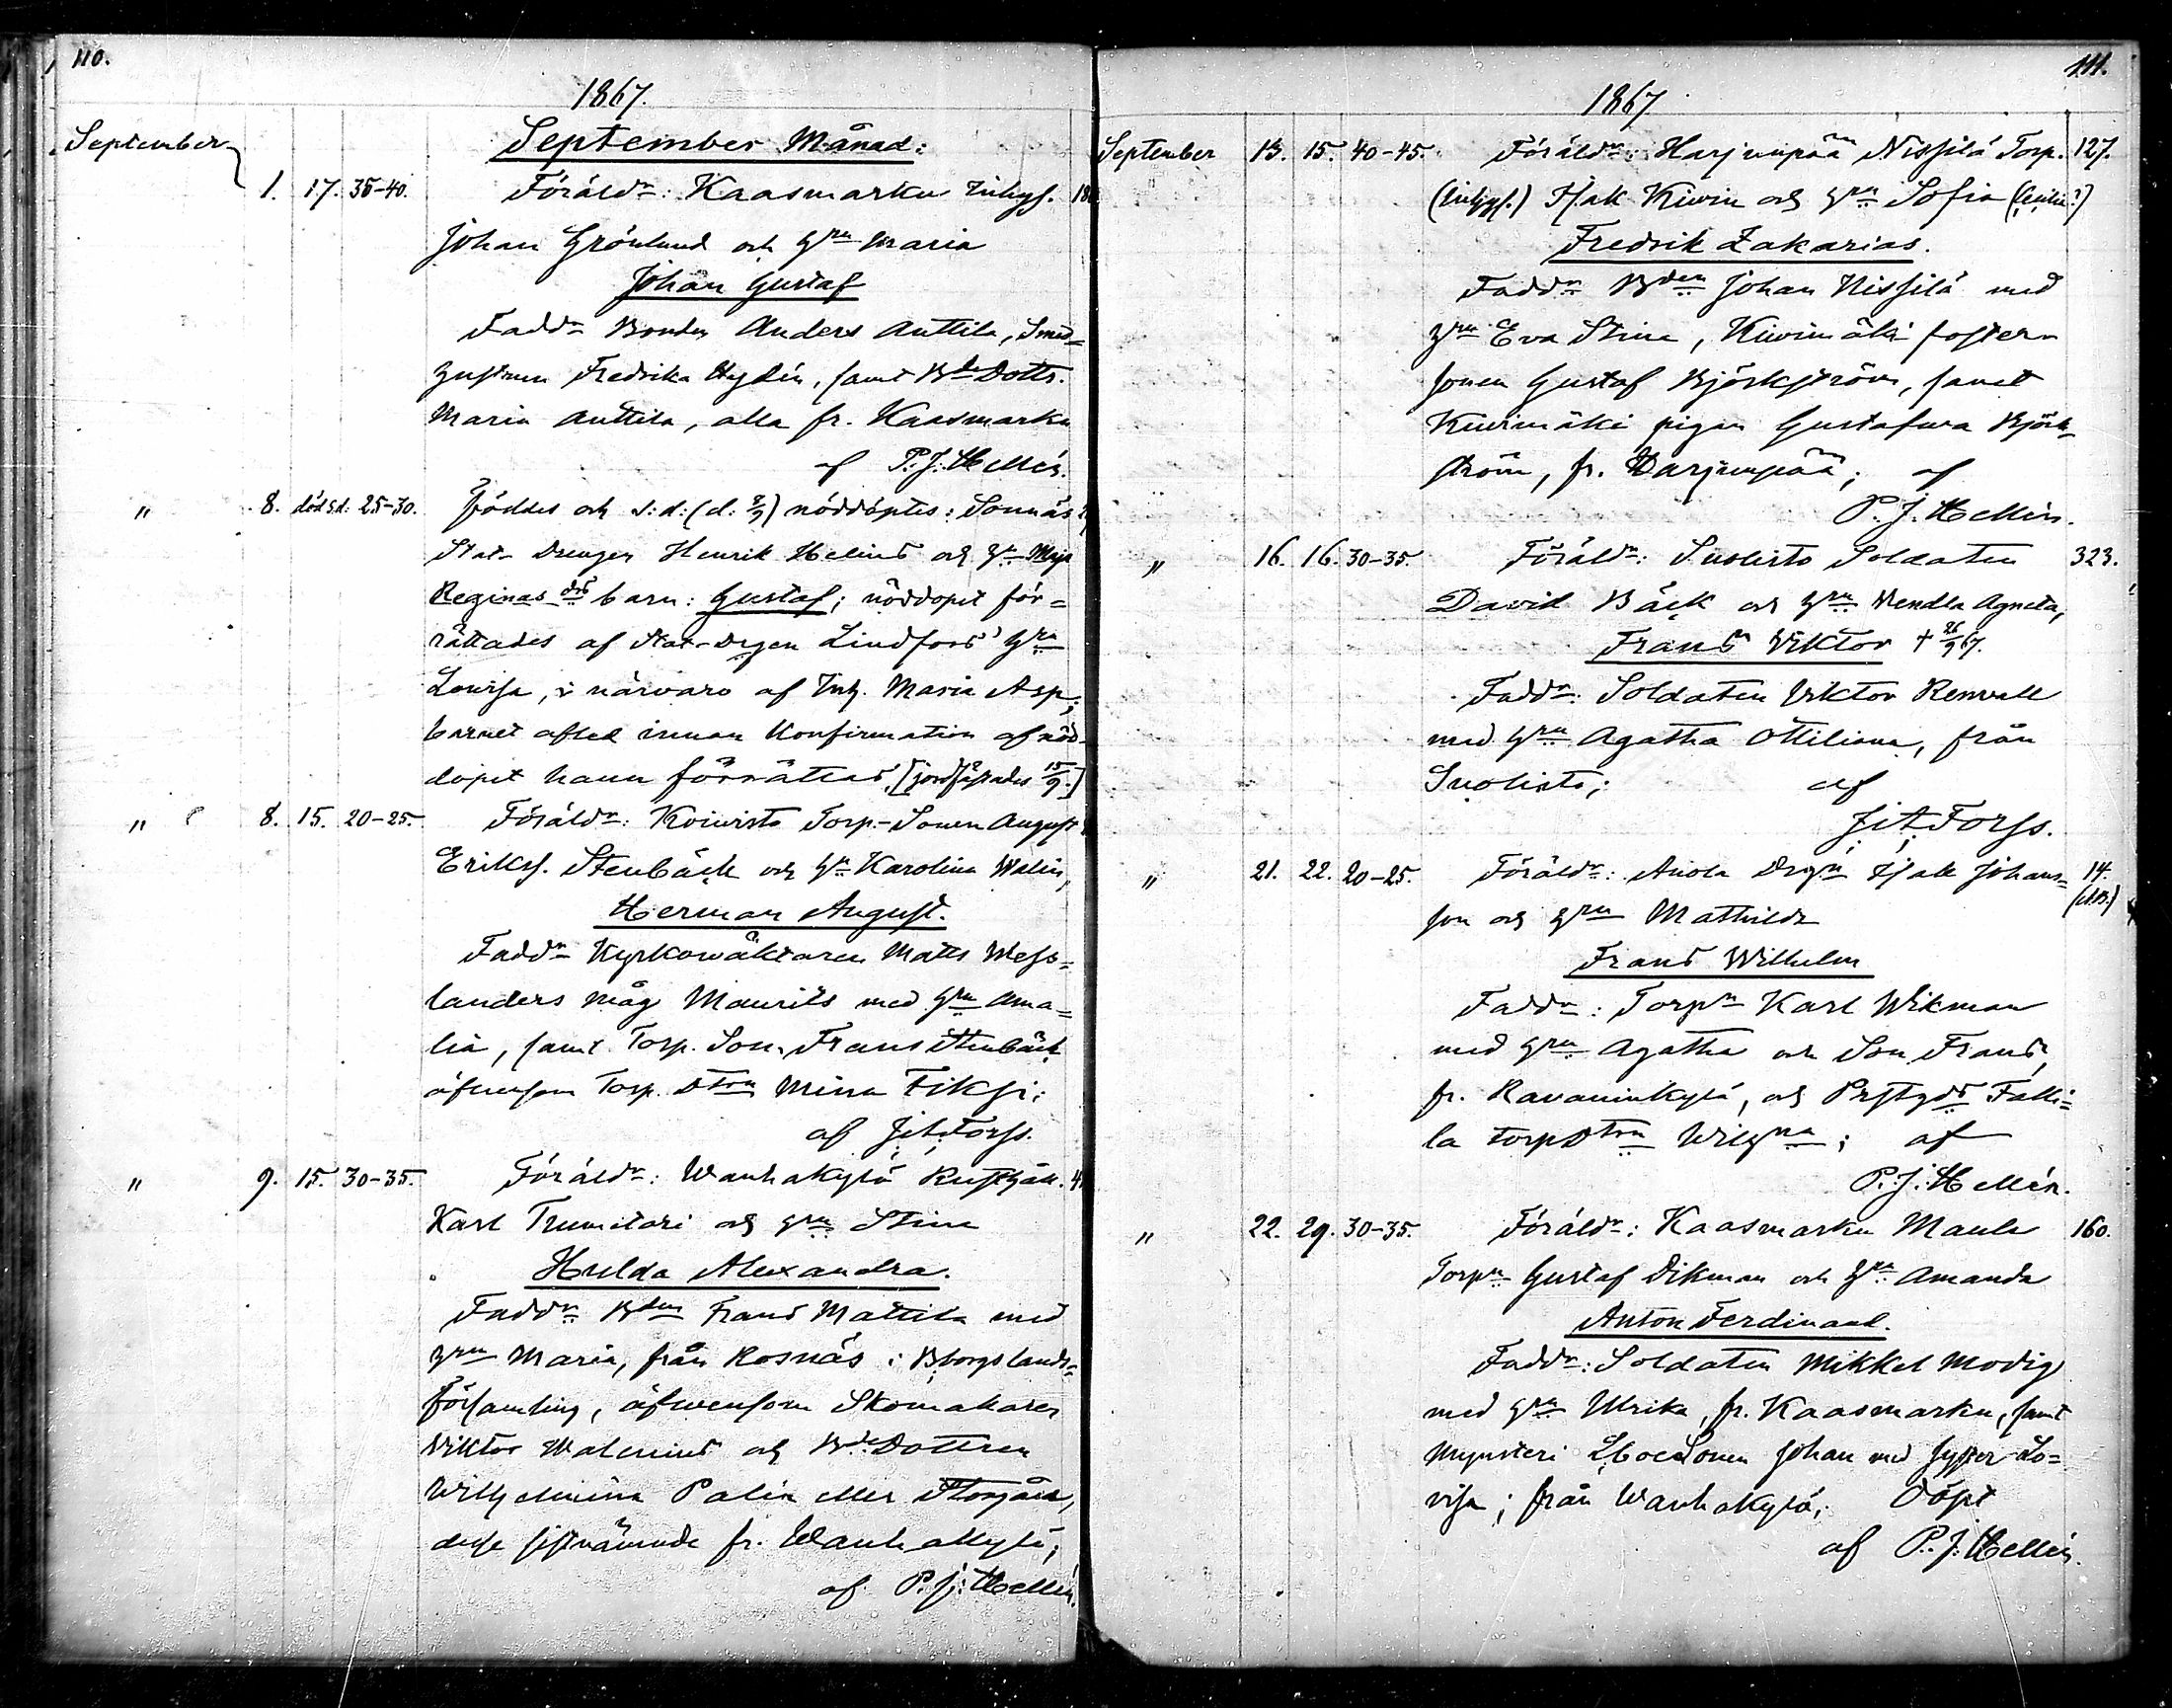 110.
1867.
September
September Månad:
1. 17. 35-40. Föräldr: Kaasmarku Inhys.
Johan Grönlund och Hru Maria
Johan Gustaf
Faddr Bonden Anders Anttila, Smed=
hustrun Fredrika Hydén, samt Bde Dottr.
Maria Anttila, alla fr. Kaasmarku
af P.J. Hellén.
" 8. död s.d: 25-30. Föddes och s:d: (d: 8/9) nöddöptes: Sonnäs
Stat-Drengen Henrik Helins och Hr Maja
Reginas drs barn: Gustaf; nöddopet för=
rättades af Stat-Drgen Lindfors' Hru
Lovisa, i närvaro af Inh. Maria Asp;
barnet afled innan Konfirmation af nöd-
dopet hann förrättas, [jordfästades 15/9.]
" 8. 15. 20-25. Föräldr: Koivisto Torp.-Sonen August
Erikss. Stenbäck och Hr Karolina Walin,
Herman August.
Faddr Kyrkowäktaren Matts Wess=
landers måg Maurits med Hru Ama=
lia, samt Torp. Son. Frans Stenbäck
äfvensom Torp. Dtrn Mina Fiksi;
af J.A. Forss.
" 9. 15. 30-35. Föräldr: Wanhakylä Rusthåll.
Karl Trumetari och Hru Stina
Hulda Alexandra.
Faddr Bden Frans Mattila med
Hru Maria, från Rosnäs i Bborgs lands=
församling, äfvensom Skomakaren
Viktor Walenius och Bde Dottren
Wilhelmina Palin eller Storgård,
desse sistnämnde fr. Wanhakylä;
af P.J. Hellén.
111.
1867
September 13. 15. 40-45. Föräldr: Harjunpää Nissilä Torp. 127.
(Inhys.) Isak Kiwin och Hru Sofia
Fredrik Zakarias.
Faddr Bden Johan Nissilä med
Hru Eva Stina, Kiwimäki foster-
sonen Gustaf Björkström, samt
Kiwimäki pigan Gustafwa Björk=
ström, fr. Harjunpää; af
P.J. Hellén.
" 16. 16. 30-35. Föräldr: Suolisto Soldaten 323.
David Bäck och Hru Wendla Agneta,
Frans Viktor † 26/9 67.
Faddr: Soldaten Viktor Renvall
med Hru Agatha Ottiliana, från
Suolisto; af
J.A. Forss.
" 21. 22. 20-25. Föräldr: Anola Drgn Isak Johans= 14.
son och Hru Mathilda
Frans Wilhelm
Faddr: Torpn Karl Wikman
med Hru Agatha och Son Frans,
fr. Ravaninkylä, och Prstgds Falli=
la torpDtrn Wilhna; af
P.J. Hellén.
" 22. 29. 30-35. Föräldr: Kaasmarku Maula 160.
Torpn Gustaf Dikman och Hru Amanda
Anton Ferdinand.
Faddr: Soldaten Mikkel Modig
med Hru Ulrika, fr. Kaasmarku, samt
Johan med syster Lo=
visa; från Wanhakylä; Döpt
af P.J. Hellén.